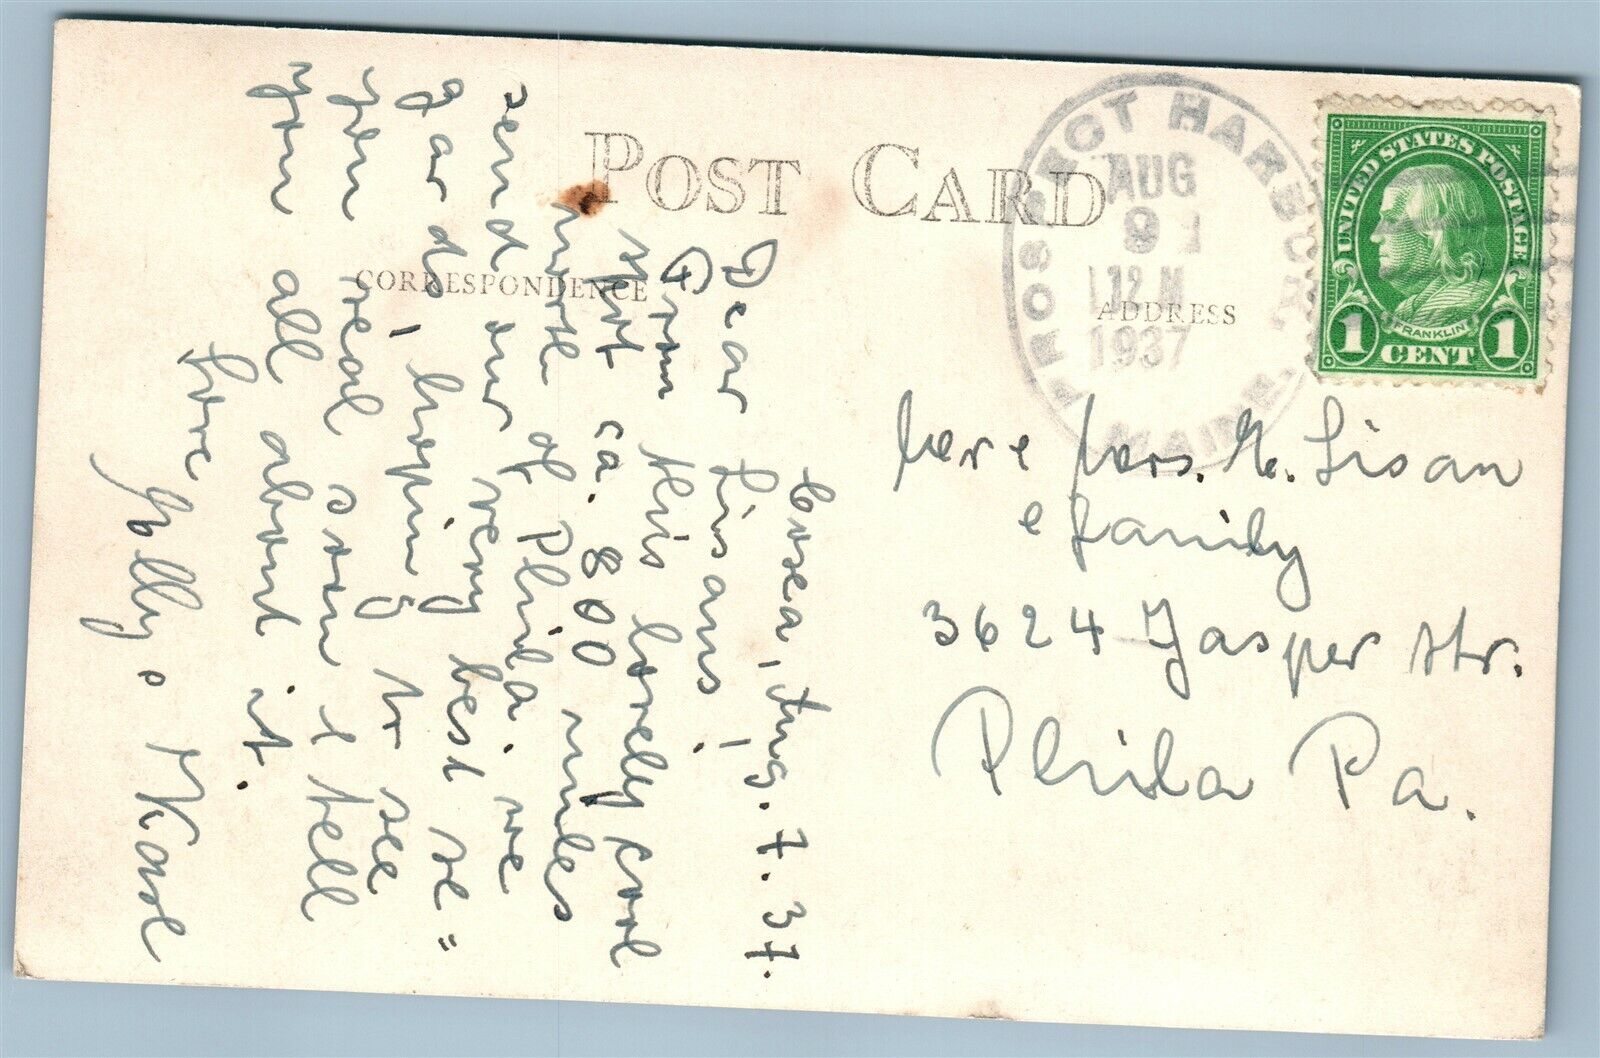 POST CARD
CORRESPONDENCE
ADDRESS
PROSPECT HARBOR,
MAINE.
AUG
9
12 M
1937
UNITED STATES POSTAGE
FRANKLIN
1 CENT 1
Corea, Aug. 7. 37.
Dear Lisans,
From this lovely cool
spot ca. 800 miles
north of Phila. we
send our very best re=
gards, hoping to see
you real soon & tell
you all about it.
Love
Molly & Karl
Mrs. M. Lisan
& family
3624 Jasper Str.
Phila Pa.